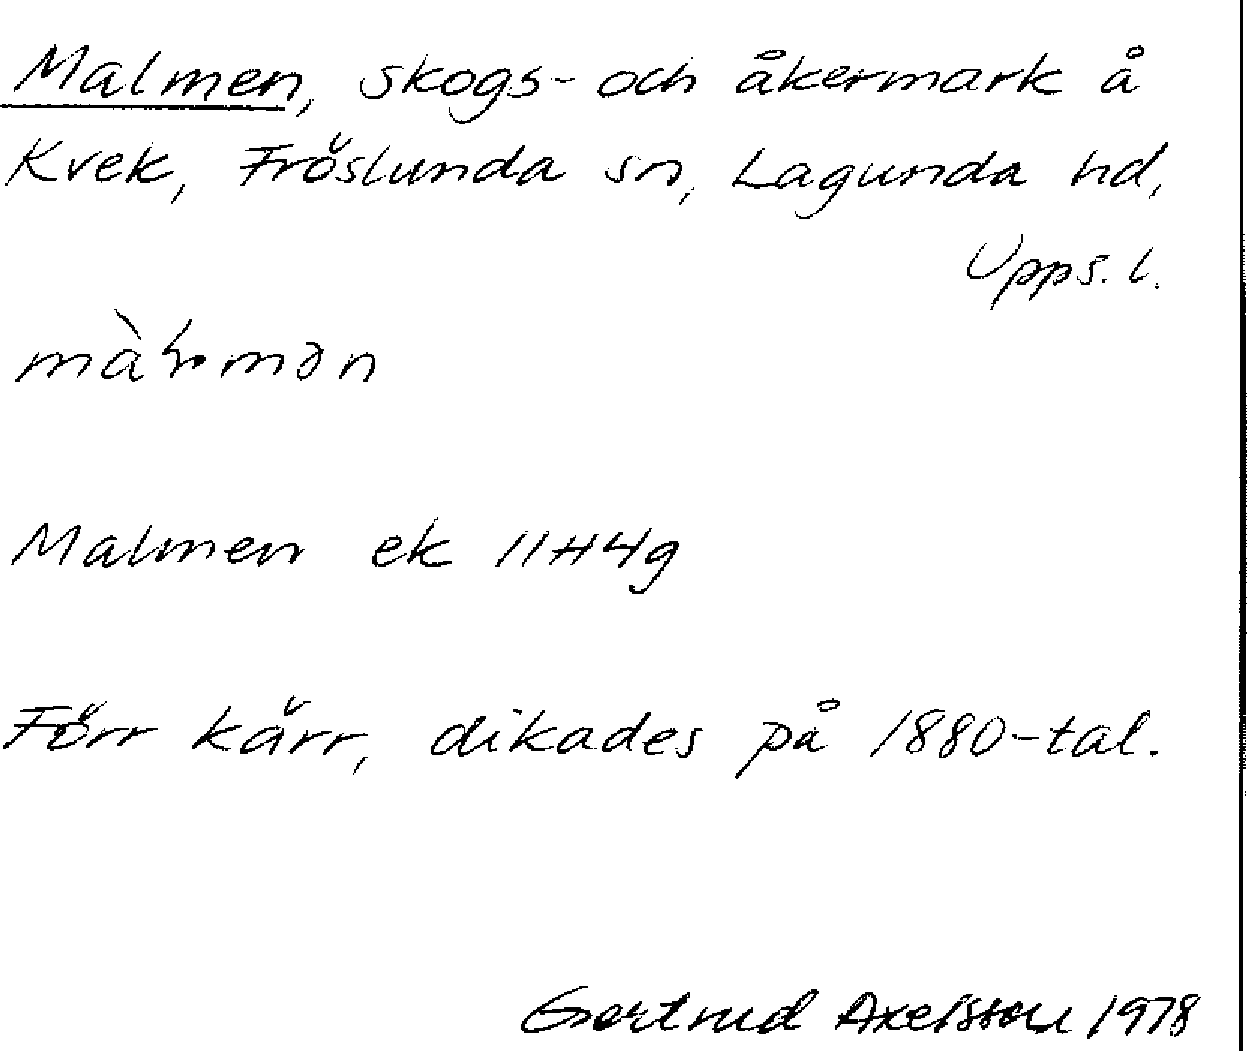 Malmen, skogs- och åkermark å
Kvek, Fröslunda sn, Lagunda hd,
Upps. l.
màɫ·mən
Malmen ek 11H4g
Förr kärr, dikades på 1880-tal.
Gertrud Axelsson 1978